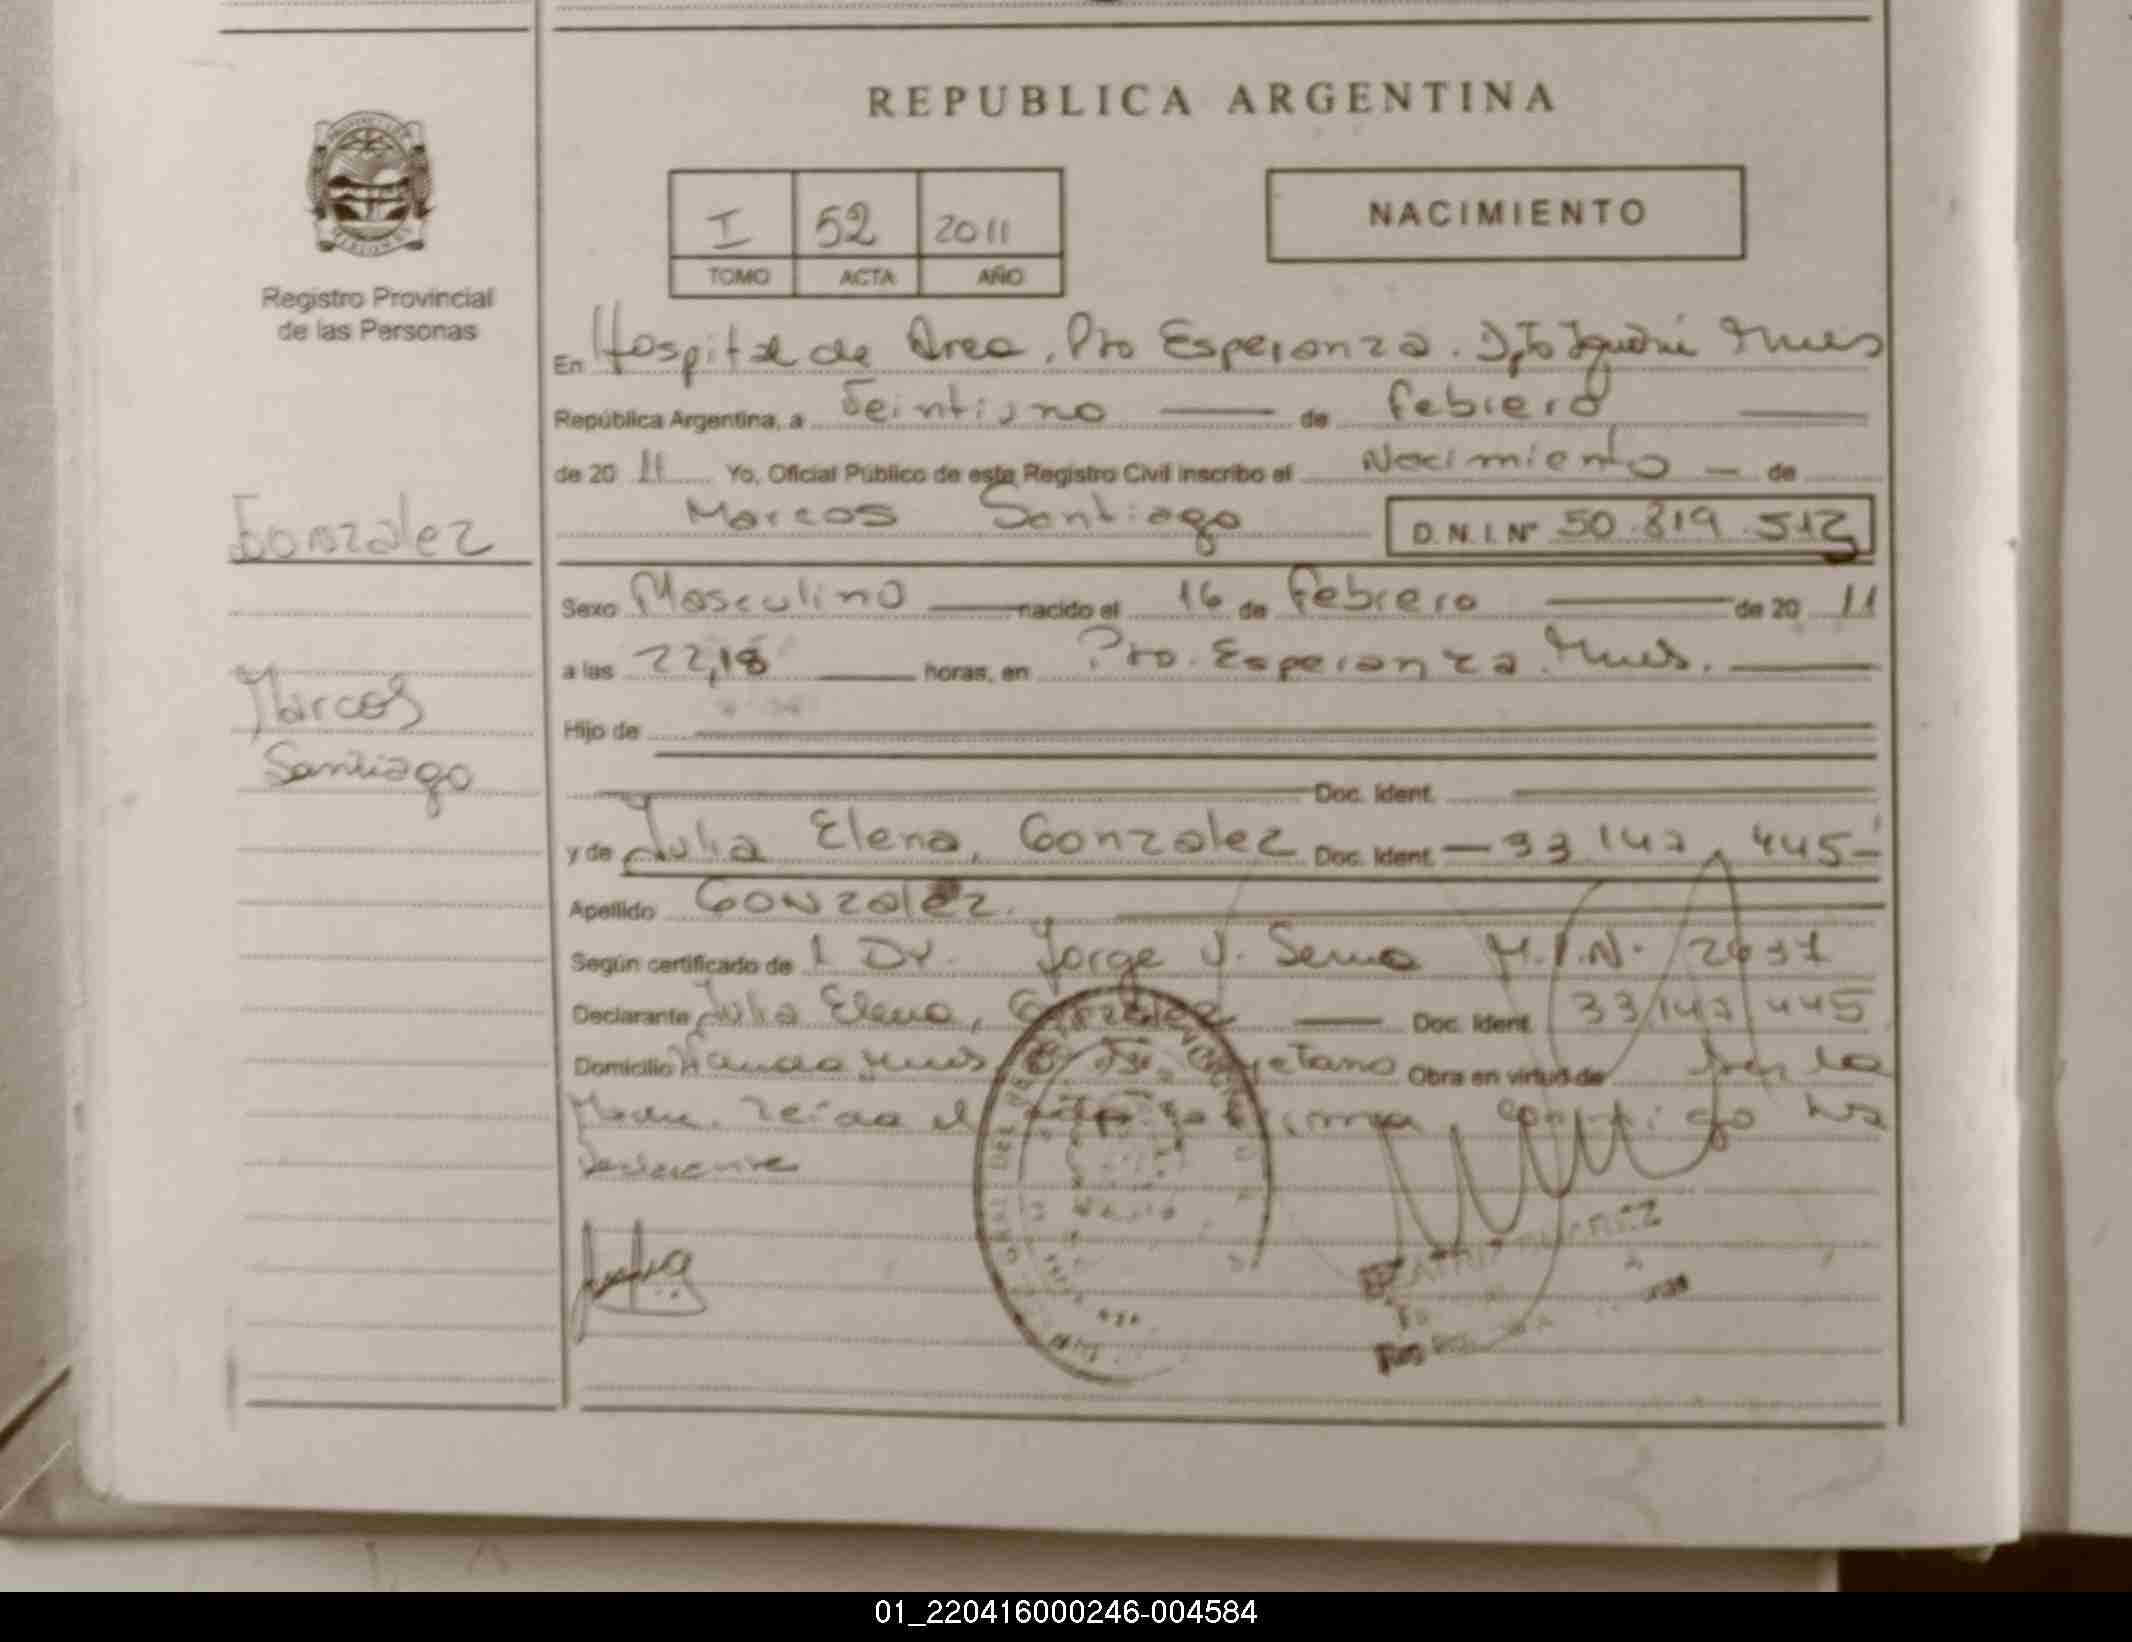 REPUBLICA ARGENTINA
I 52 2011
TOMO ACTA AÑO
NACIMIENTO
Registro Provincial
de las Personas
En Hospital de Area, Pto Esperanza. Dpto Iguazú Mnes
República Argentina, a Veintiuno de febrero
de 20 11 Yo, Oficial Público de este Registro Civil inscribo el Nacimiento de
Marcos Santiago D.N.I. Nº 50.819.512
Gonzalez
Marcos
Santiago
Sexo Masculino nacido el 16 de febrero de 20 11
a las 22,18 horas, en Pto. Esperanza. Mnes.
Hijo de
Doc. Ident.
y de Julia Elena, Gonzalez Doc. Ident. 33 147 445
Apellido Gonzalez.
Según certificado de l Dr. Jorge J. M.I.N.
Declarante Julia Elena, Gonzalez Doc. Ident. 33 147 445
Domicilio Mnes Obra en virtud de la
Madre. Leída el acta firma conmigo la
Declarante
01_220416000246-004584